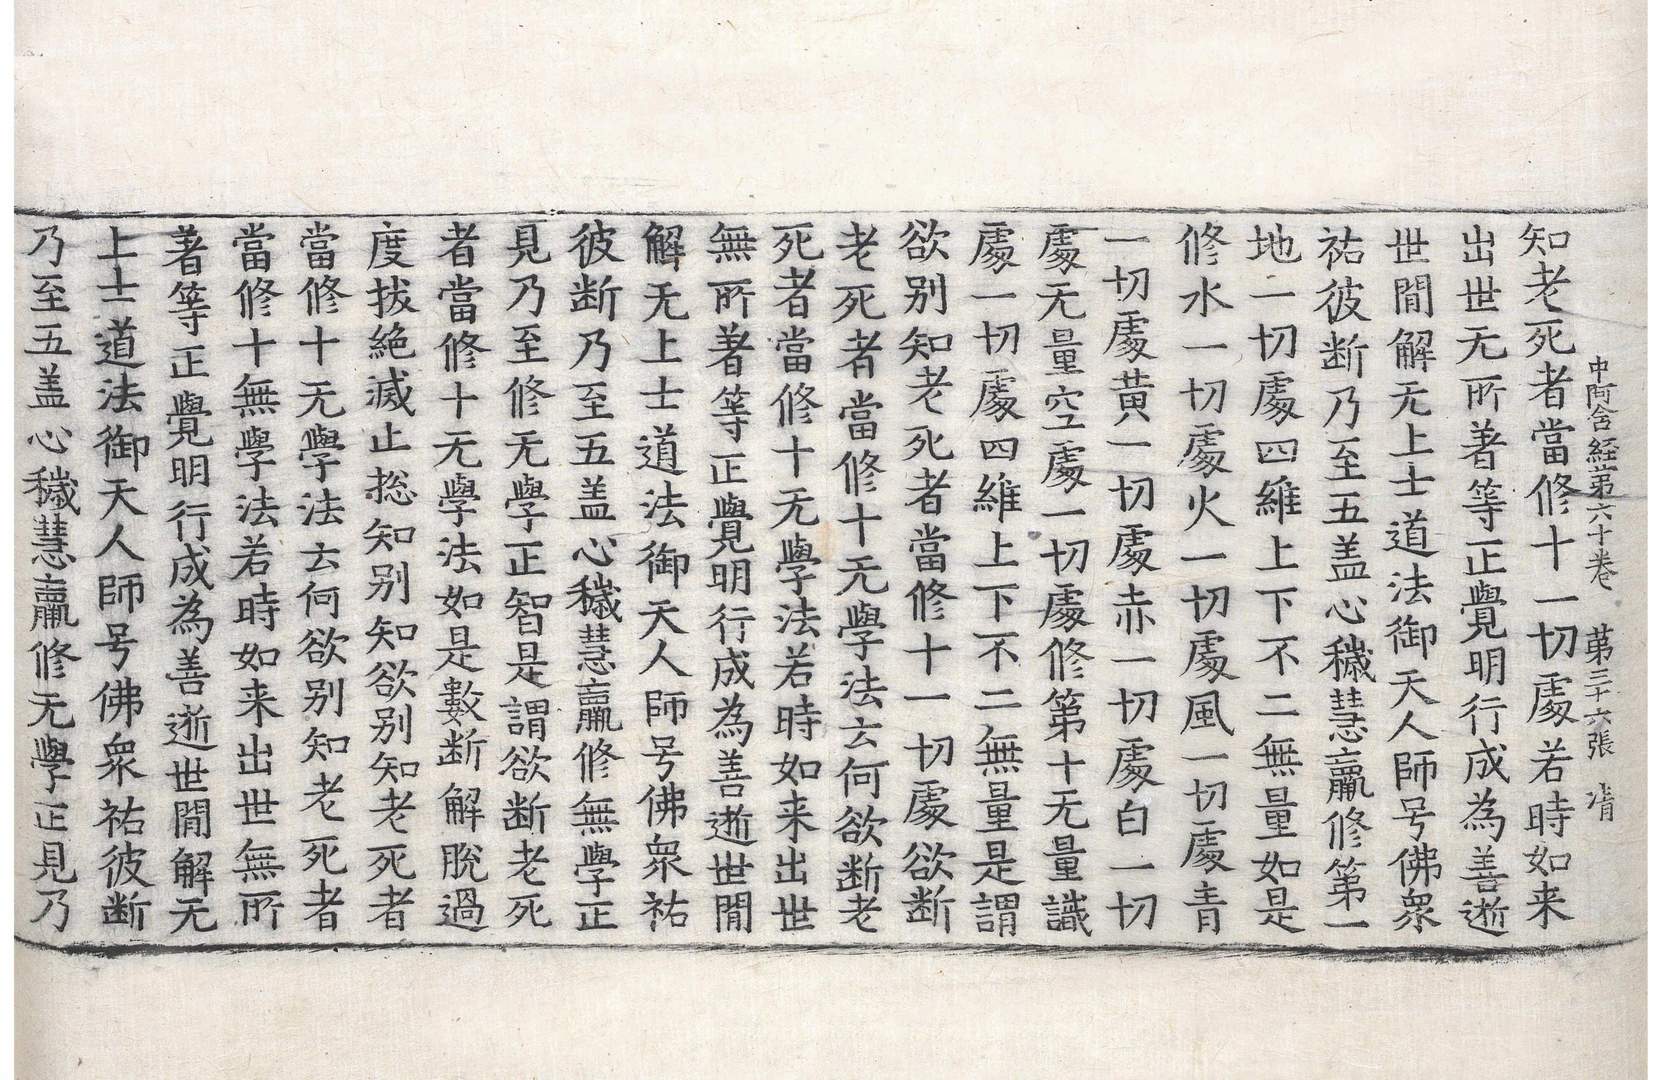 中阿含経苐六十卷 苐三十六張 清
知老死者當修十一切處若時如来
出世无所著等正覺明行成為善逝
世間解无上士道法御天人師号佛衆
祐彼断乃至五盖心穢慧羸修第一
地一切處四維上下不二無量如是
修水一切處火一切處風一切處青
一切處黃一切處赤一切處白一切
處无量空處一切處修第十无量識
處一切處四維上下不二無量是謂
欲別知老死者當修十一切處欲断
老死者當修十无學法云何欲断老
死者當修十无學法若時如来出世
無所著等正覺明行成為善逝世間
解无上士道法御天人師号佛衆祐
彼断乃至五盖心穢慧羸修無學正
見乃至修无學正智是謂欲断老死
者當修十无學法如是數断解脫過
度拔絶滅止捴知別知欲別知老死者
當修十无學法云何欲別知老死者
當修十無學法若時如来出世無所
著等正覺明行成為善逝世間解无
上士道法御天人師号佛衆祐彼断
乃至五盖心穢慧羸修无學正見乃